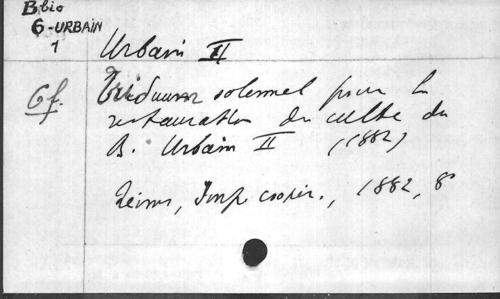 B bio
6-URBAIN
1
Urbain II
Cf.
Triduum solennel pour la
restauration du culte du
B. Urbain II (1882)
Reims, Imp. coopér., 1882, 8°